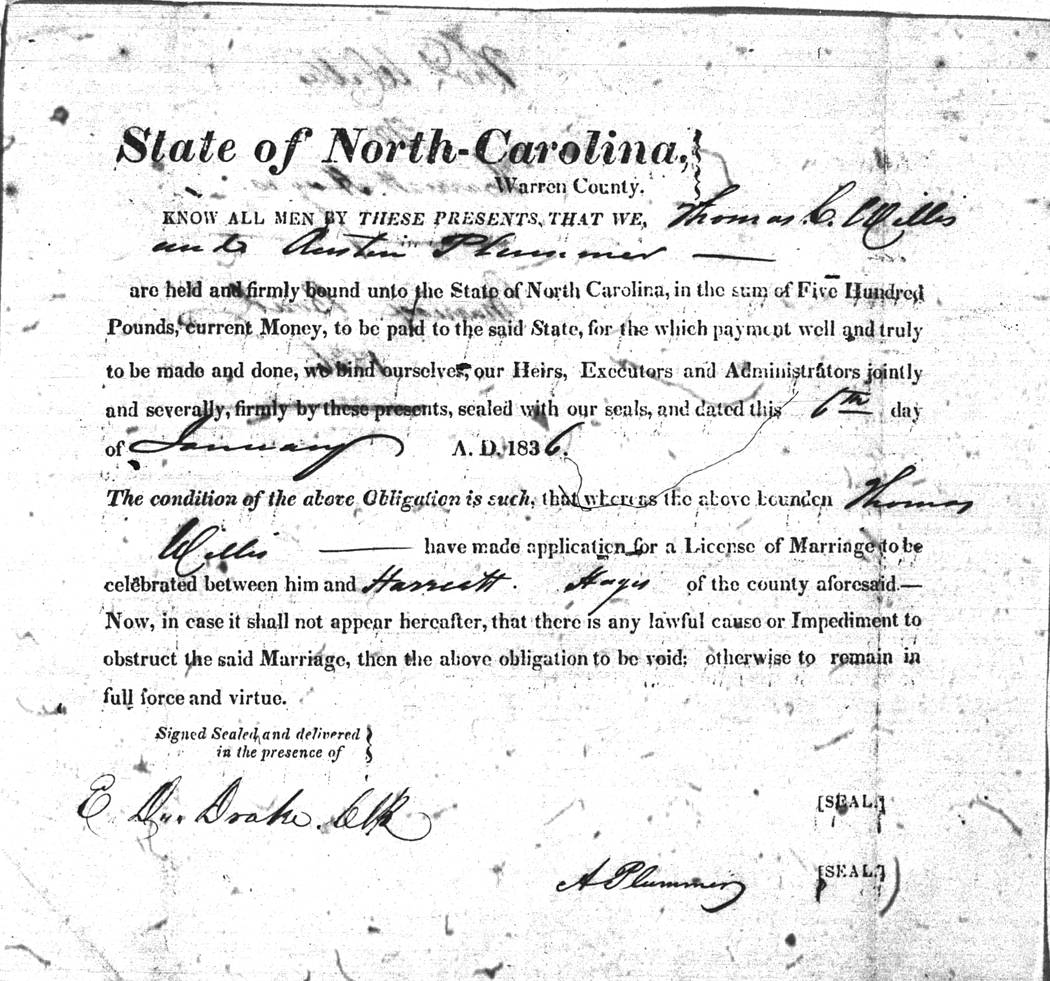 State of North-Carolina,
Warren County.
KNOW ALL MEN BY THESE PRESENTS, THAT WE, Thomas C. Willis
and Austin Plummer
are held and firmly bound unto the State of North Carolina, in the sum of Five Hundred
Pounds, current Money, to be paid to the said State, for the which payment well and truly
to be made and done, we bind ourselves, our Heirs, Executors and Administrators jointly
and severally, firmly by these presents, sealed with our seals, and dated this 6th day
of January A. D. 1836.
The condition of the above Obligation is such, that whereas the above bounden Thomas
Willis have made application for a License of Marriage to be
celebrated between him and Harreatt. Hays of the county aforesaid.—
Now, in case it shall not appear hereafter, that there is any lawful cause or Impediment to
obstruct the said Marriage, then the above obligation to be void; otherwise to remain in
full force and virtue.
Signed Sealed, and delivered
in the presence of
E. D. Drake. Clk
[SEAL.]
A Plummer [SEAL.]